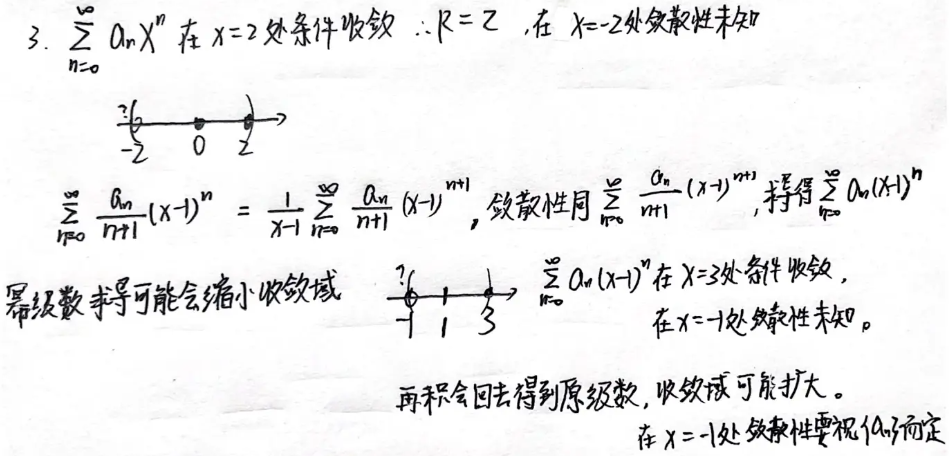 3. $\sum_{n=0}^{\infty} a_n x^n$ 在 x=2 处条件收敛 ∴R=2 ,在 x=-2处敛散性未知
? -2 0 2
$\sum_{n=0}^{\infty} \frac{a_n}{n+1}(x-1)^n = \frac{1}{x-1} \sum_{n=0}^{\infty} \frac{a_n}{n+1}(x-1)^{n+1}$, 敛散性同 $\sum_{n=0}^{\infty} \frac{a_n}{n+1}(x-1)^{n+1}$, 求导得 $\sum_{n=0}^{\infty} a_n(x-1)^n$
幂级数求导可能会缩小收敛域
? -1 1 3
$\sum_{n=0}^{\infty} a_n(x-1)^n$ 在 x=3处条件收敛,
在x=-1处敛散性未知。
再积会回去得到原级数, 收敛域可能扩大。
在 x=-1处 敛散性要视{a_n}而定